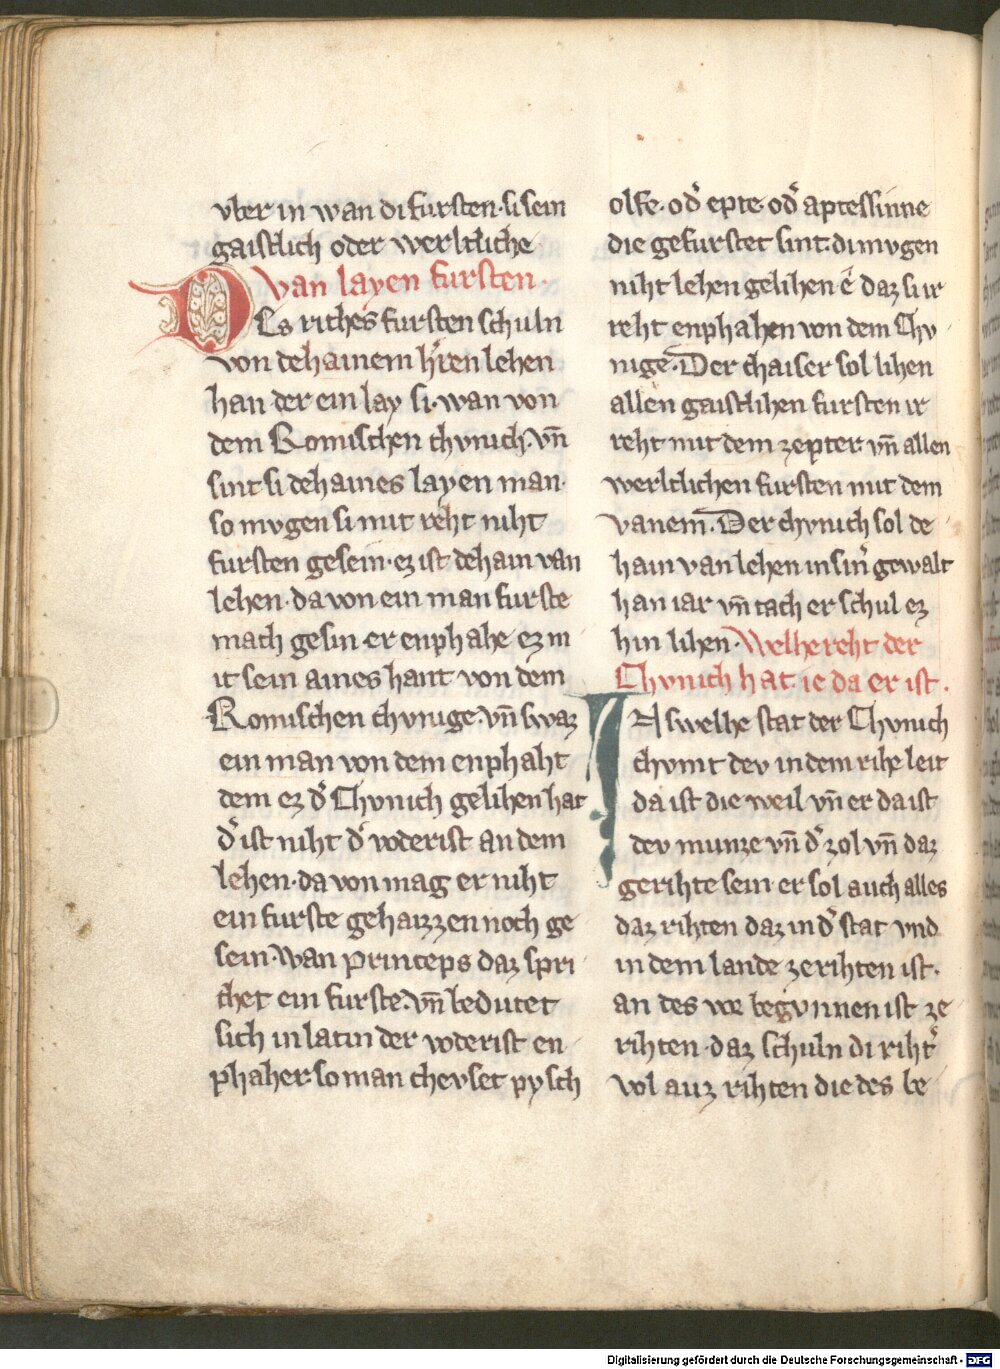 vber in wan di fursten. si sein
gaistlich oder werltliche
van layen fursten.
DEs riches fursten schuln
von dehainem h'ren lehen
han der ein lay si. wan von
dem Romischen chvnich. vn̄
sint si dehaines layen man.
so mvgen si mit reht niht
fursten gesein. ez ist dehain van
lehen. da von ein man furste
mach gesin. er enphahe ez m
it sein aines hant von dem
Romischen chvnige. vn̄ swaz
ein man von dem enphaht
dem ez d' Chvnich gelihen hat
d' ist niht d' voderist an dem
lehen. da von mag er niht
ein furste gehaizzen noch ge
sein. Wan princeps daz spri
chet ein furste. vn̄ bedutet
sich in latin der voderist en
phaher. so man cheuset pysch
olfe. od' epte. od' aptessinne
die gefurstet sint. di mvgen
niht lehen gelihen ē daz si ir
reht enphahen von dem Chv
nige. Der chaiser sol lihen
allen gaistlihen fursten ir
reht mit dem zepter. vn̄ allen
werltlichen fursten mit dem
vanem. Der chvnich sol de
hain van lehen in sin' gewalt
han iar vn̄ tach er schul ez
hin lihen. Welhe reht der
Chvnich hat. ie da er ist.
IN swelhe stat der Chvnich
chvmt dev in dem rihe leit
da ist die weil vn̄ er da ist
dev munze vn̄ d' zol vn̄ daz
gerihte sein. er sol auch alles
daz rihten daz in d' stat vnd
in dem lande ze rihten ist.
an des vor begvnnen ist ze
rihten. daz schuln di riht'
vol auz rihten die des be
Digitalisierung gefördert durch die Deutsche Forschungsgemeinschaft - DFG